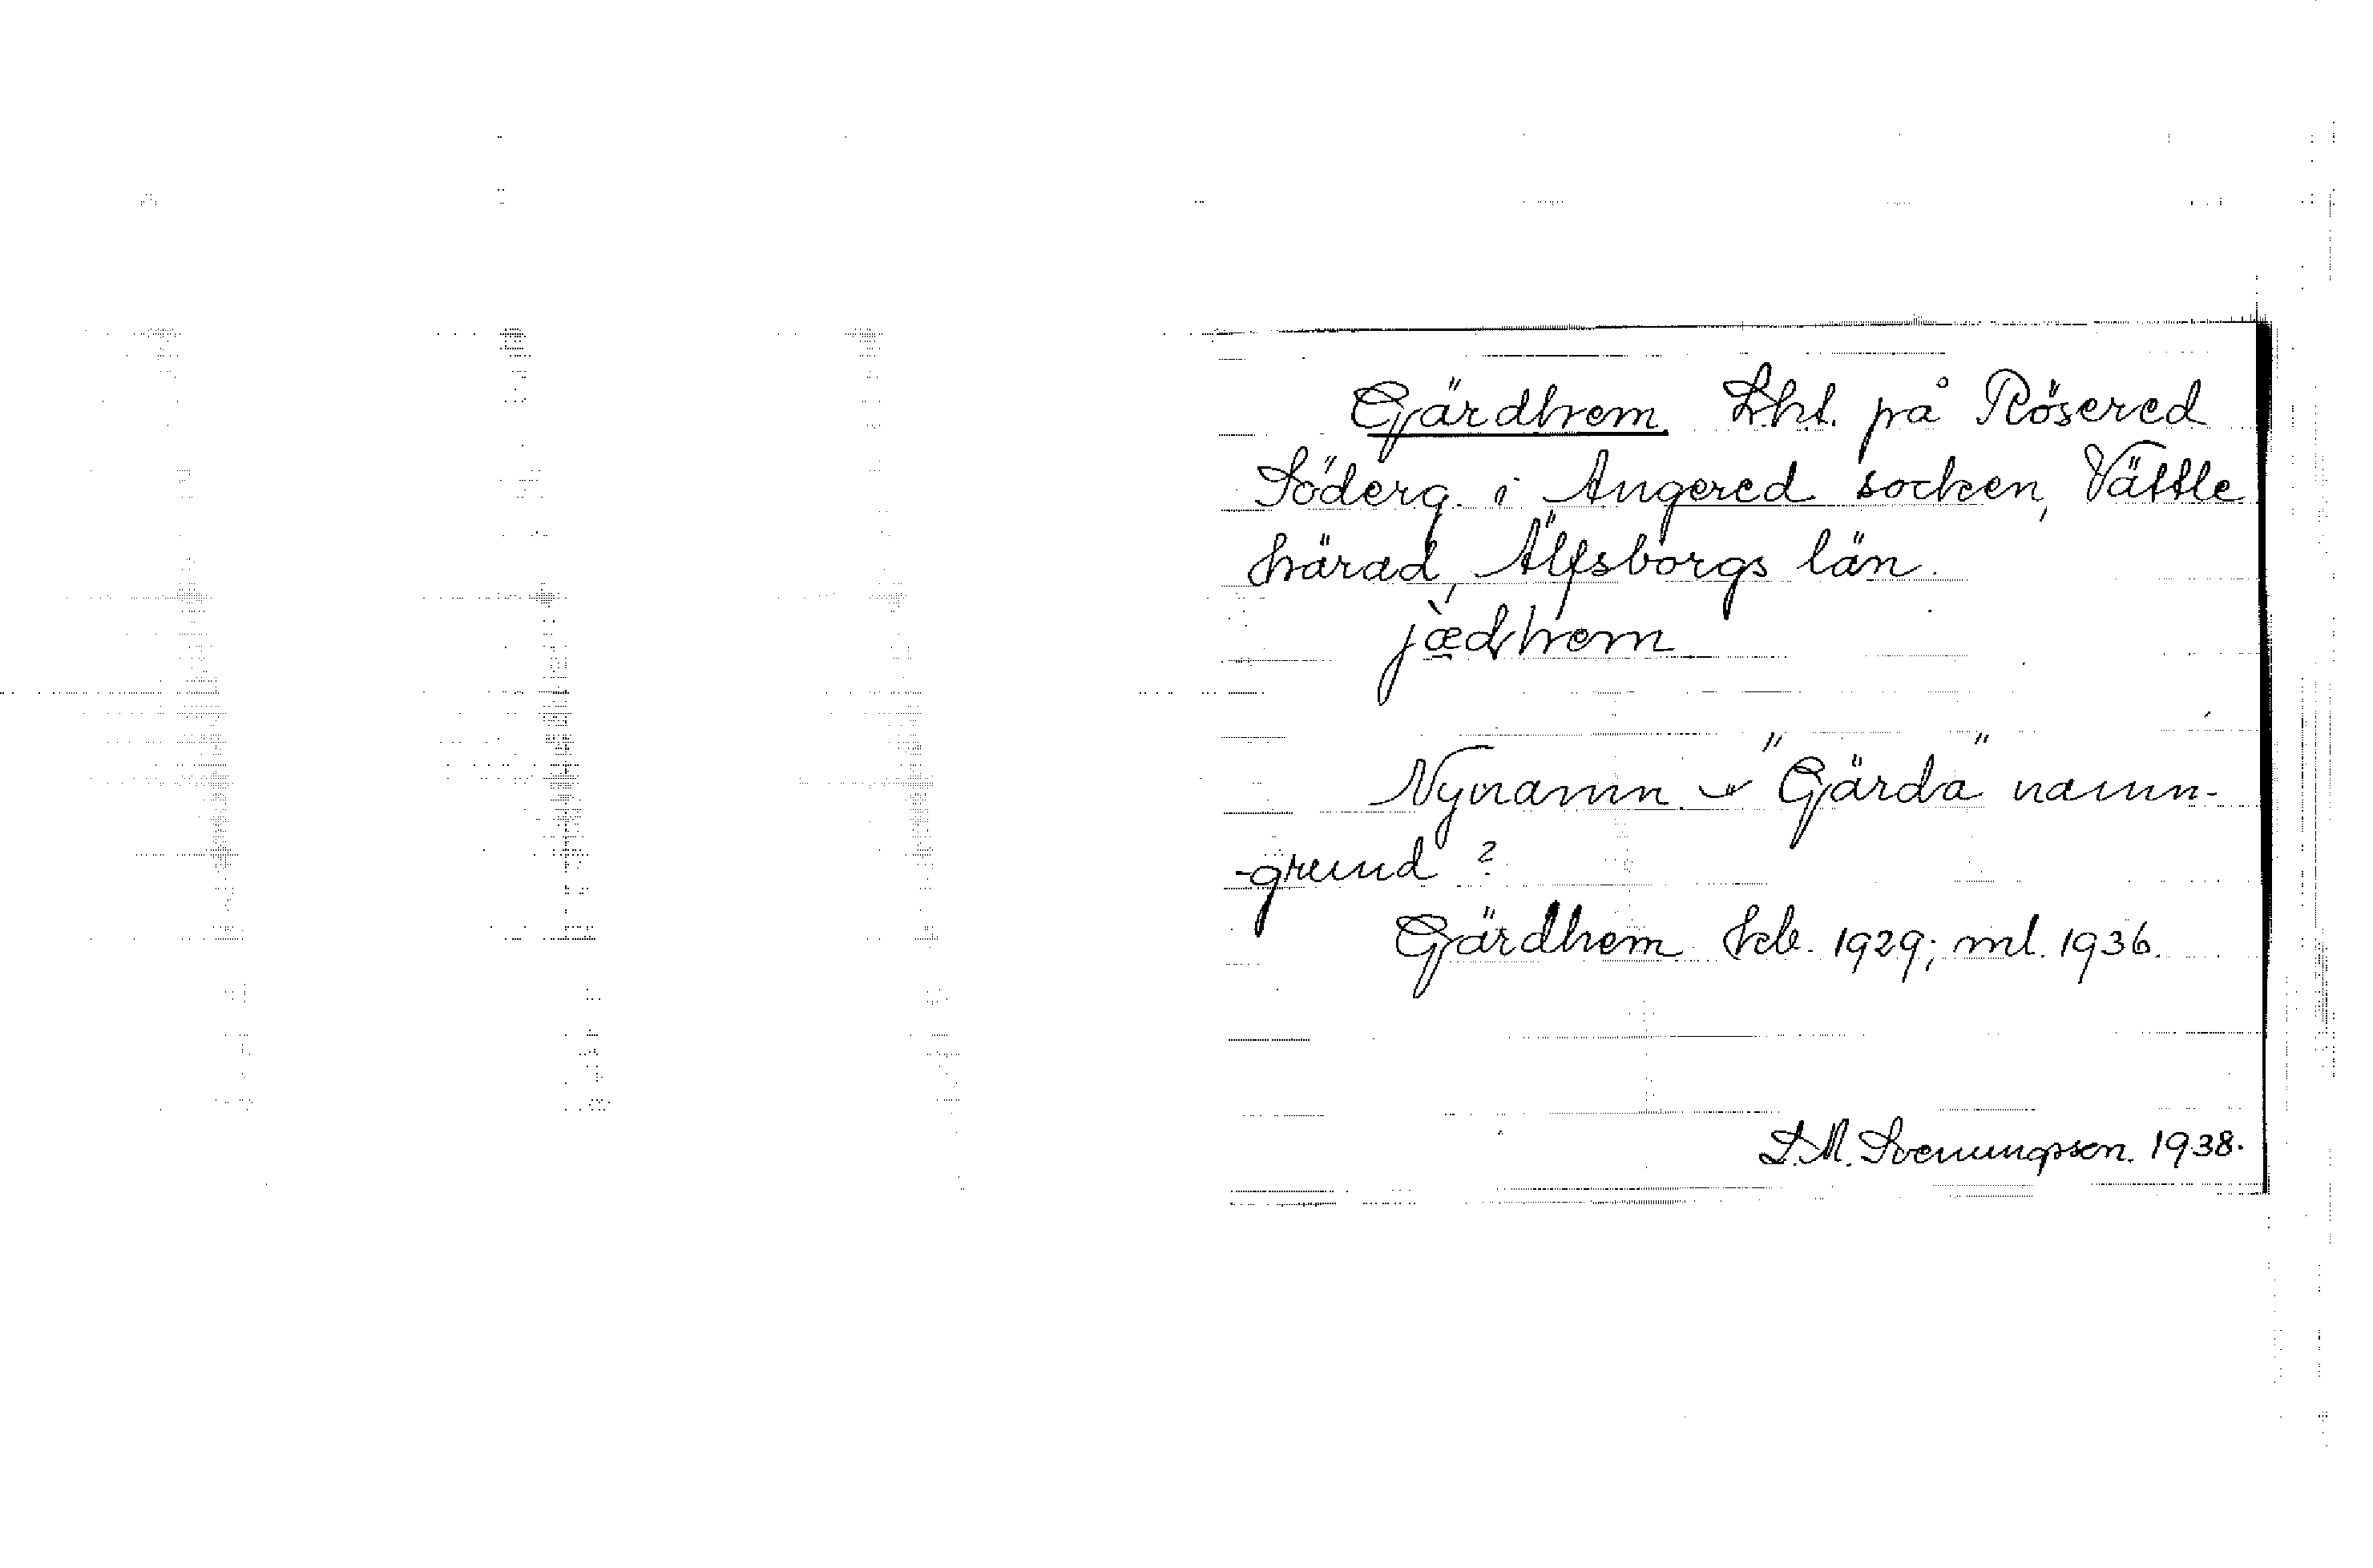 Gärdhem. Lht. på Rösered
Söderg. i Angered socken, Vättle
härad, Älfsborgs län.
jæ̀dhem
Nynamn. "Gärda" namn-
-grund?
Gärdhem kb. 1929; ml. 1936.
S.M. Svenungsson. 1938.